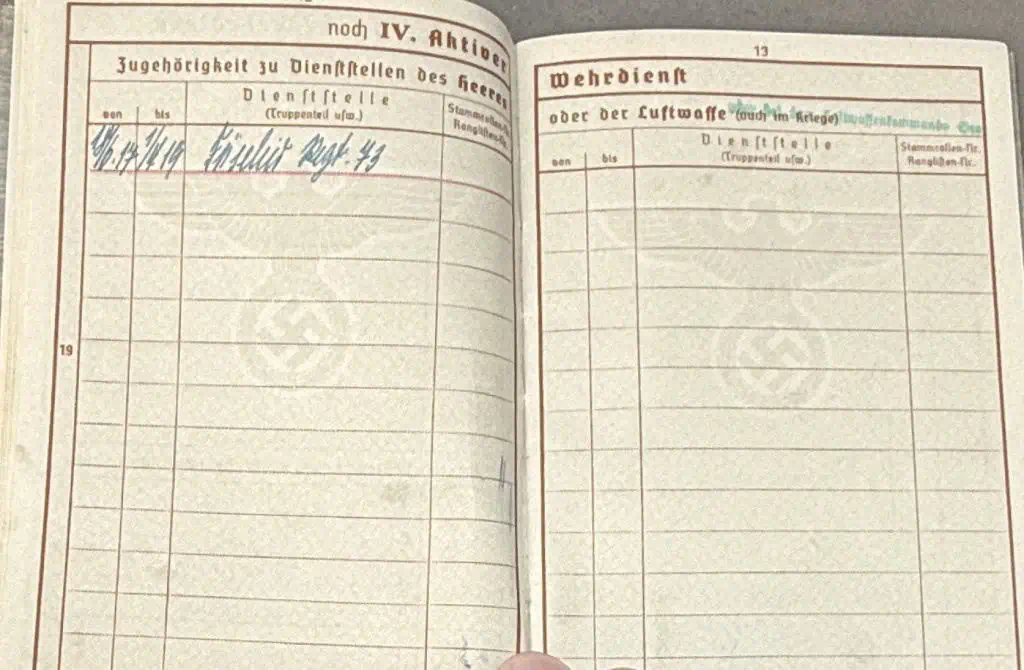 noch IV. Aktiver
Zugehörigkeit zu Dienststellen des Heeres
von
bis
Dienststelle
(Truppenteil usw.)
Stammrollen-Nr.
Ranglisten-Nr.
19 Regt. 73
19
13
Wehrdienst
oder der Luftwaffe (auch im Kriege)
von
bis
Dienststelle
(Truppenteil usw.)
Stammrollen-Nr.
Ranglisten-Nr.